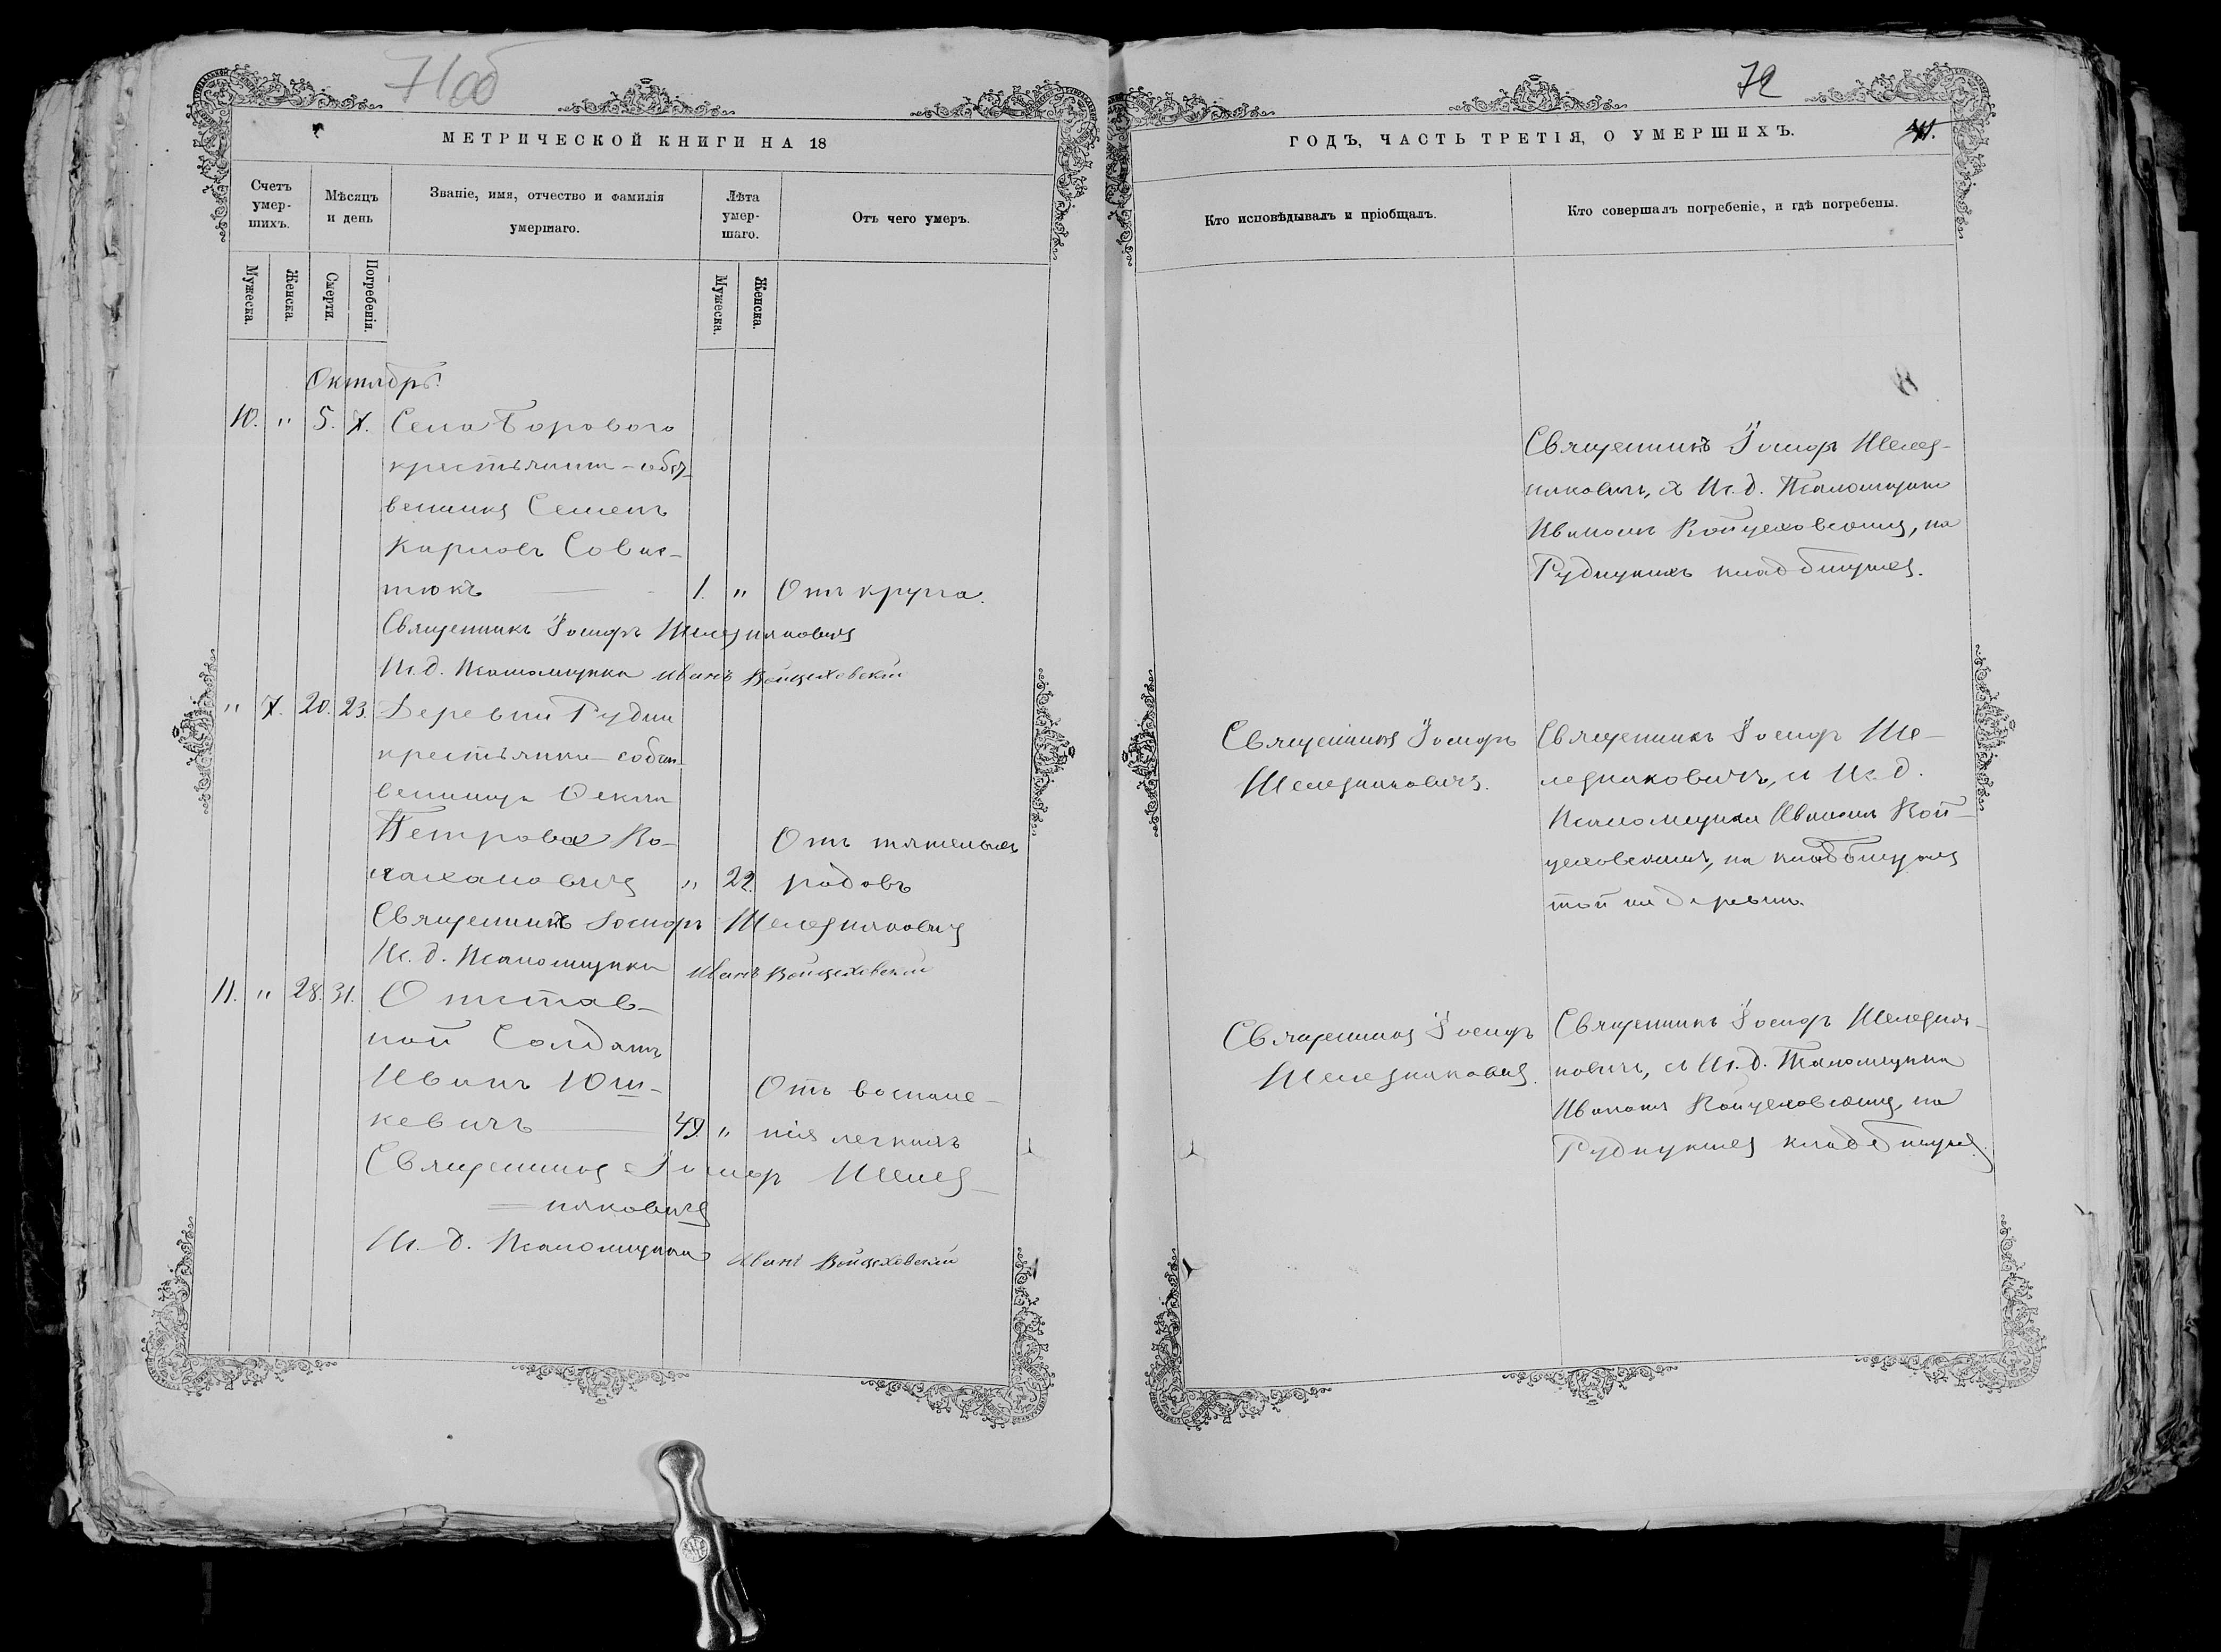 71об
МЕТРИЧЕСКОЙ КНИГИ НА 18
Счетъ умер-шихъ.
Мѣсяцъ и день
Званіе, имя, отчество и фамилія умершаго.
Лѣта умер-шаго.
Отъ чего умеръ.
Мужеска.
Женска.
Смерти.
Погребенія.
Мужеска.
Женска.
Октябрь.
10. " 5. 7. Села Борового
крестьянинъ-собст-
венникъ Семенъ
Карповъ Савас-
тюкъ — 1. " Отъ крупа.
Священникъ Іосифъ Шелезняковичъ
И. д. Псаломщика Иванъ Войцеховскій
" 7. 20. 23. Деревни Рудни
крестьянка-собст-
венница Ѳекла
Петрова Ко-
Отъ тяжелыхъ
" 22. родовъ
Священникъ Іосифъ Шелезняковичъ
И. д. Псаломщика Иванъ Войцеховскій
11. " 28. 31. Отстав-
ной Солдатъ
Иванъ Юш-
Отъ воспале-
кевичъ — 49. " нія легкихъ
Священникъ Іосифъ Шелез-
няковичъ
И. д. Псаломщика Иванъ Войцеховскій
72
ГОДЪ, ЧАСТЬ ТРЕТІЯ, О УМЕРШИХЪ.
Кто исповѣдывалъ и пріобщалъ.
Кто совершалъ погребеніе, и гдѣ погребены.
Священникъ Іосифъ Шелез-
няковичъ, съ И. д. Псаломщика
Иваномъ Войцеховскимъ, на
Рудницкомъ кладбищѣ.
Священникъ Іосифъ
Шелезняковичъ.
Священникъ Іосифъ Ше-
лезняковичъ, съ И. д.
Псаломщика Иваномъ Вой-
цеховскимъ, на кладбищѣ
той же деревни.
Священникъ Іосифъ
Шелезняковичъ.
Священникъ Іосифъ Шелезня-
ковичъ, съ И. д. Псаломщика
Иваномъ Войцеховскимъ, на
Рудницкомъ кладбищѣ.